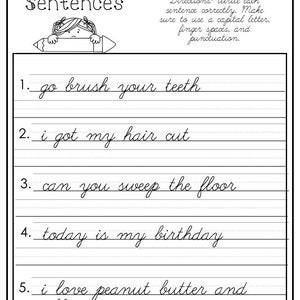 Sentences
Directions: Write each
sentence correctly. Make
sure to use a capital letter,
finger spaces, and
punctuation.
1. go brush your teeth
2. i got my hair cut
3. can you sweep the floor
4. today is my birthday
5. i love peanut butter and